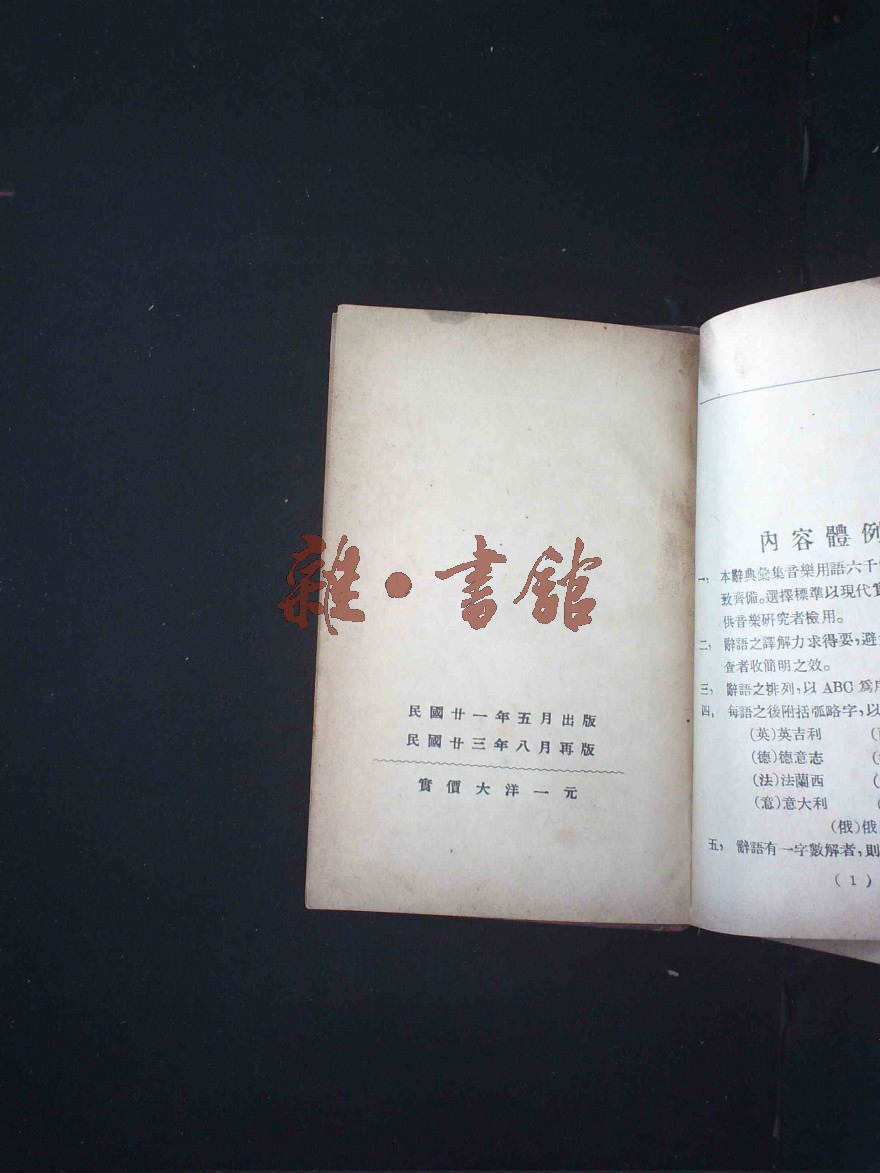 雜·書館
民國廿一年五月出版
民國廿三年八月再版
實價大洋一元
內容體例
一，本辭典彙集音樂用語六千
致齊備。選擇標準以現代實
供音樂研究者檢用。
二，辭語之譯解力求得要，避
查者收簡明之效。
三，辭語之排列，以 ABC 爲
四，每語之後附括弧略字，以
(英)英吉利
(德)德意志
(法)法蘭西
(意)意大利
(俄)俄
五，辭語有一字數解者，則
(1)